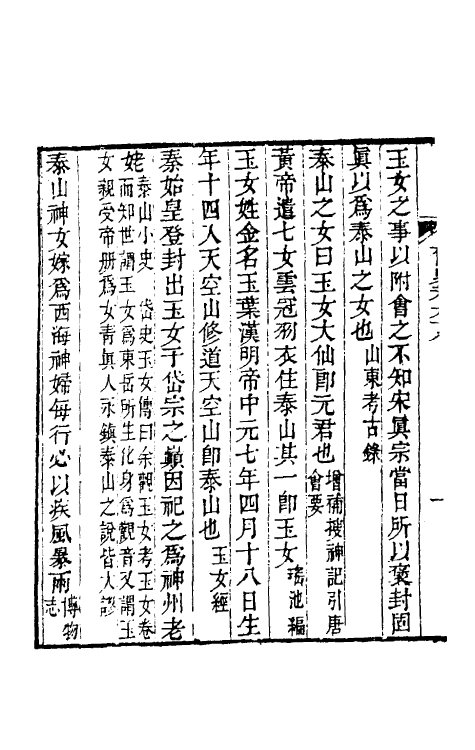 玉女之事以附會之不知宋眞宗當日所以褒封固
眞以爲泰山之女也山東考古錄
泰山之女曰玉女大仙卽元君也增補搜神記引唐
會要
黃帝遣七女雲冠羽衣住泰山其一卽玉女瑤池編
玉女姓金名玉葉漢明帝中元七年四月十八日生
年十四入天空山修道天空山卽泰山也玉女經
秦始皇登封出玉女于岱宗之巔因祀之爲神州老
姥泰山小史 岱史玉女傳曰余觀玉女考玉女卷
而知世謂玉女爲東岳所生化身爲觀音又謂玉
女親受帝册爲女青眞人永鎮泰山之說皆大謬
泰山神女嫁爲西海神婦每行必以疾風暴雨博物
志